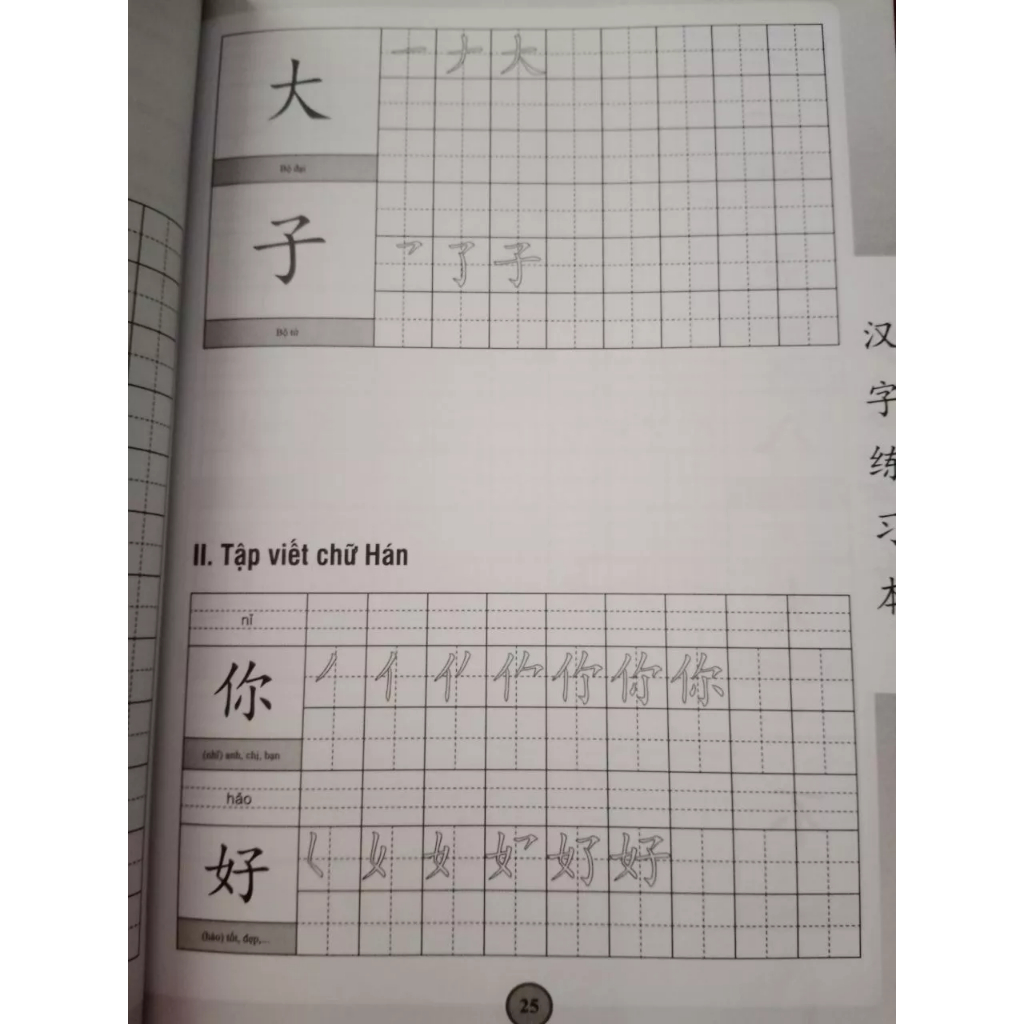 大 一 ナ 大
Bộ đại
子 ㇇ 了 子
Bộ tử
II. Tập viết chữ Hán
nǐ
你 丿 亻 你
(nhĩ) anh, chị, bạn
hǎo
好 女 好
(hảo) tốt, đẹp,...
汉字练习本
25